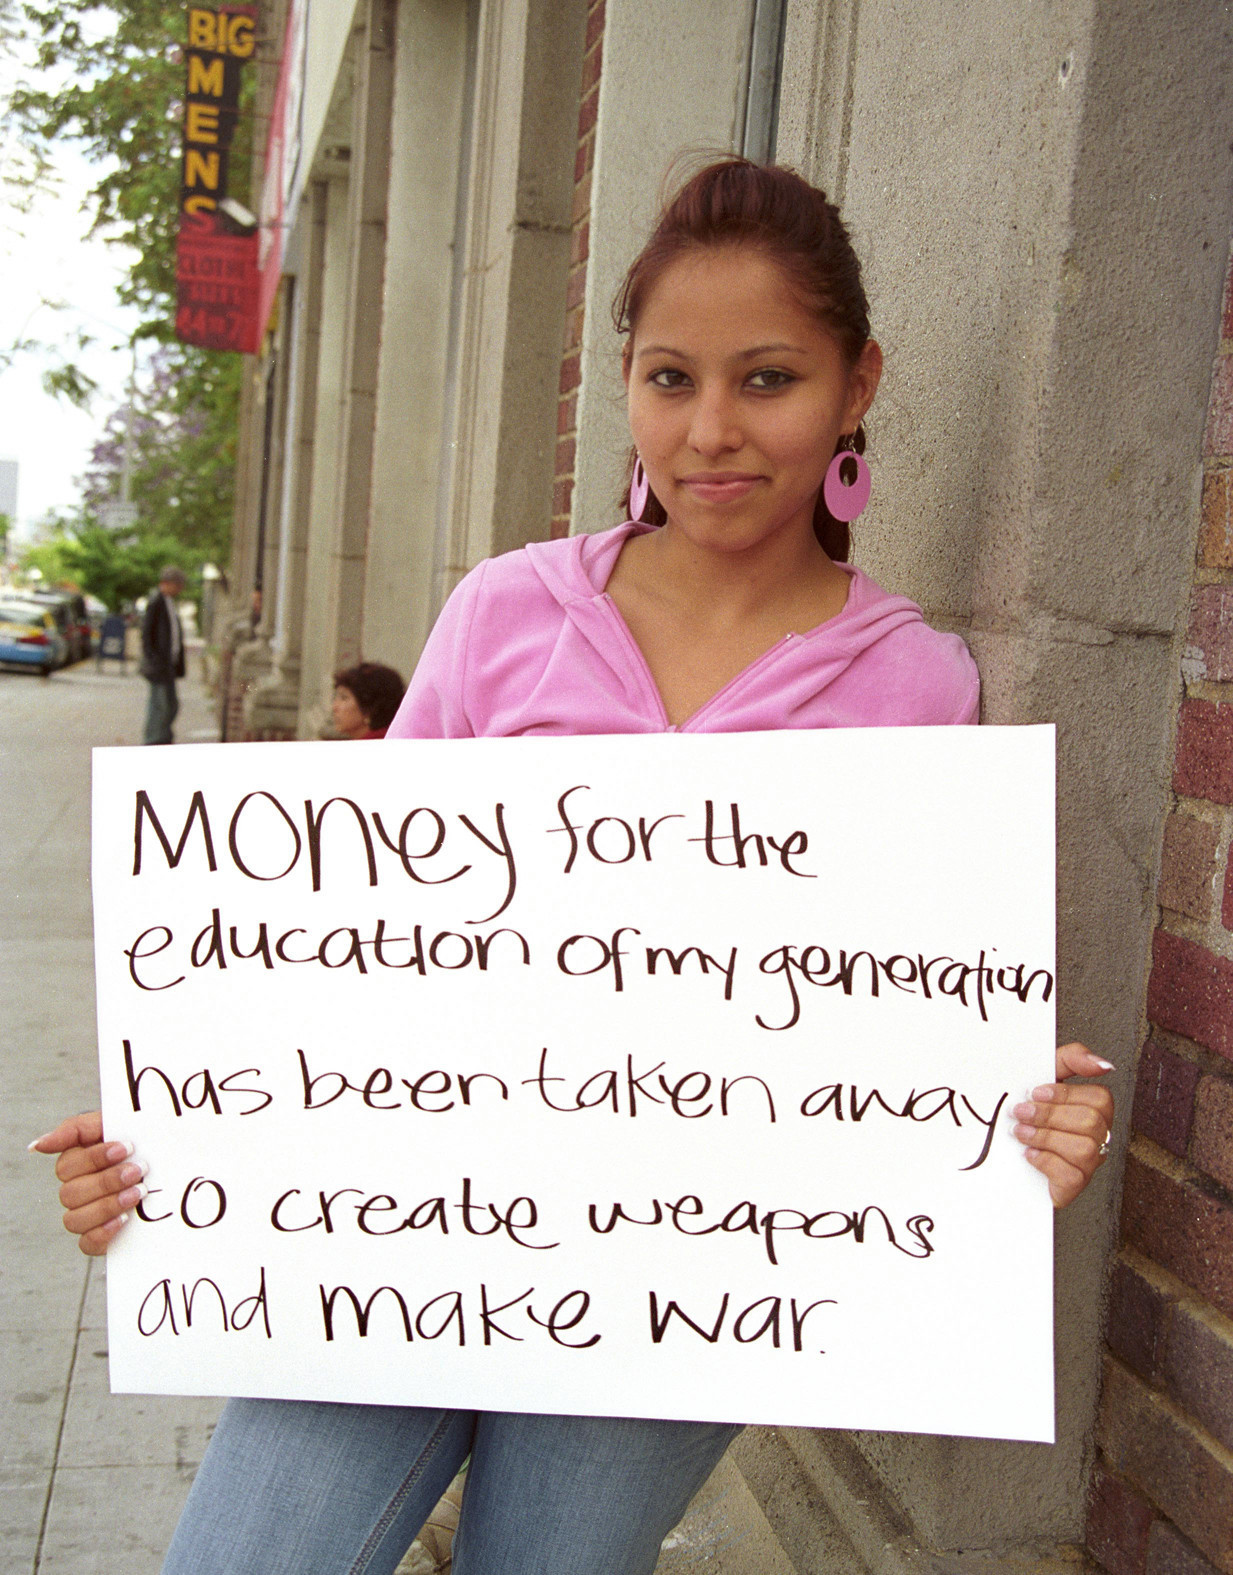 BIG
MENS
CLOTHE
Money for the
education of my generation
has been taken away
to create weapons
and make war.